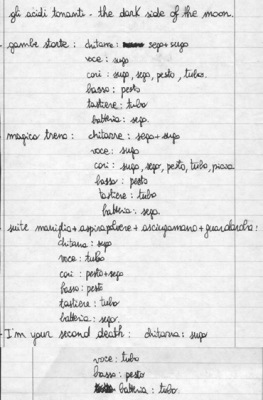 gli acidi tonanti - the dark side of the moon.
- gambe storte: chitarre: sega+sugo
voce: sugo
cori: sugo, sega, pesto, tubo.
basso: pesto
tastiere: tubo
batteria: sega.
- magico treno: chitarre: sega+sugo
voce: sugo
cori: sugo, sega, pesto, tubo, piova
basso: pesto
tastiere: tubo
batteria: sega.
- suite maniglia+aspirapolvere+asciugamano+guardaroba:
chitarra: sugo
voce: tubo
cori: pesto+sega
basso: pesto
tastiere: tubo
batteria: sega.
- I'm your second death: chitarra: sugo
voce: tubo
basso: pesto
batteria: tubo.